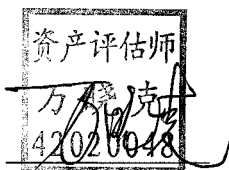 资产评估师
万晓克
42020048